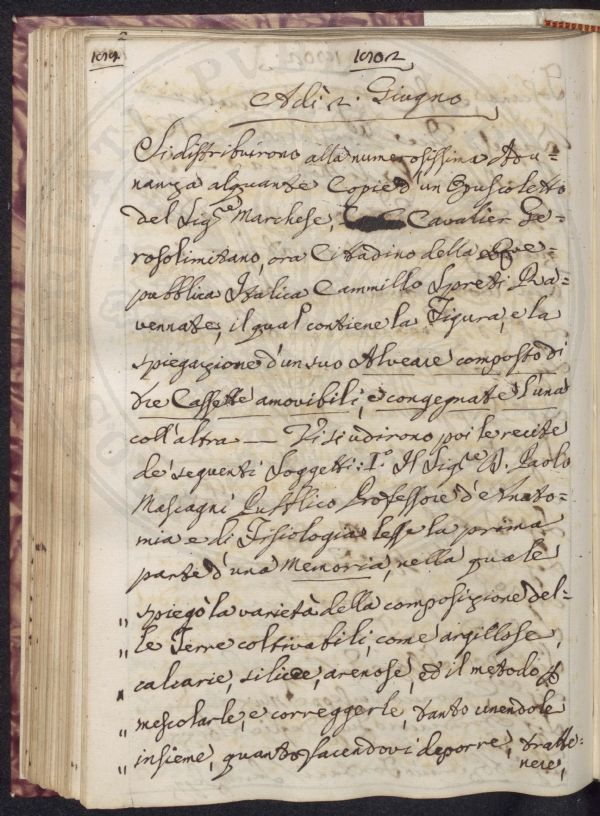 1802
Adì 2. Giugno
Si distribuirono alla numerosissima Adu=
nanza alquante Copie d'un Opuscoletto
del Sig.re Marchese, Cavalier Ge=
rosolimitano, ora Cittadino della Re=
pubblica Italica Cammillo Spreti Ra=
vennate, il qual contiene la Figura, e la
spiegazione d'un suo Alveare composto di
tre Cassette amovibili, e congegnate l'una
coll'altra — Vi si udirono poi le recite
de' seguenti Soggetti: I.o Il Sig.re D. Paolo
Mascagni Pubblico Professore d'Anato=
mia e di Fisiologia lesse la prima
parte d'una Memoria, nella quale
„ spiegò la varietà della composizione del=
„ le Terre coltivabili, come argillose,
„ calcarie, silicee, arenose, ed il metodo
„ mescolarle, e correggerle, tanto unendole
„ insieme, quanto facendovi deporre, tratte=
nere,